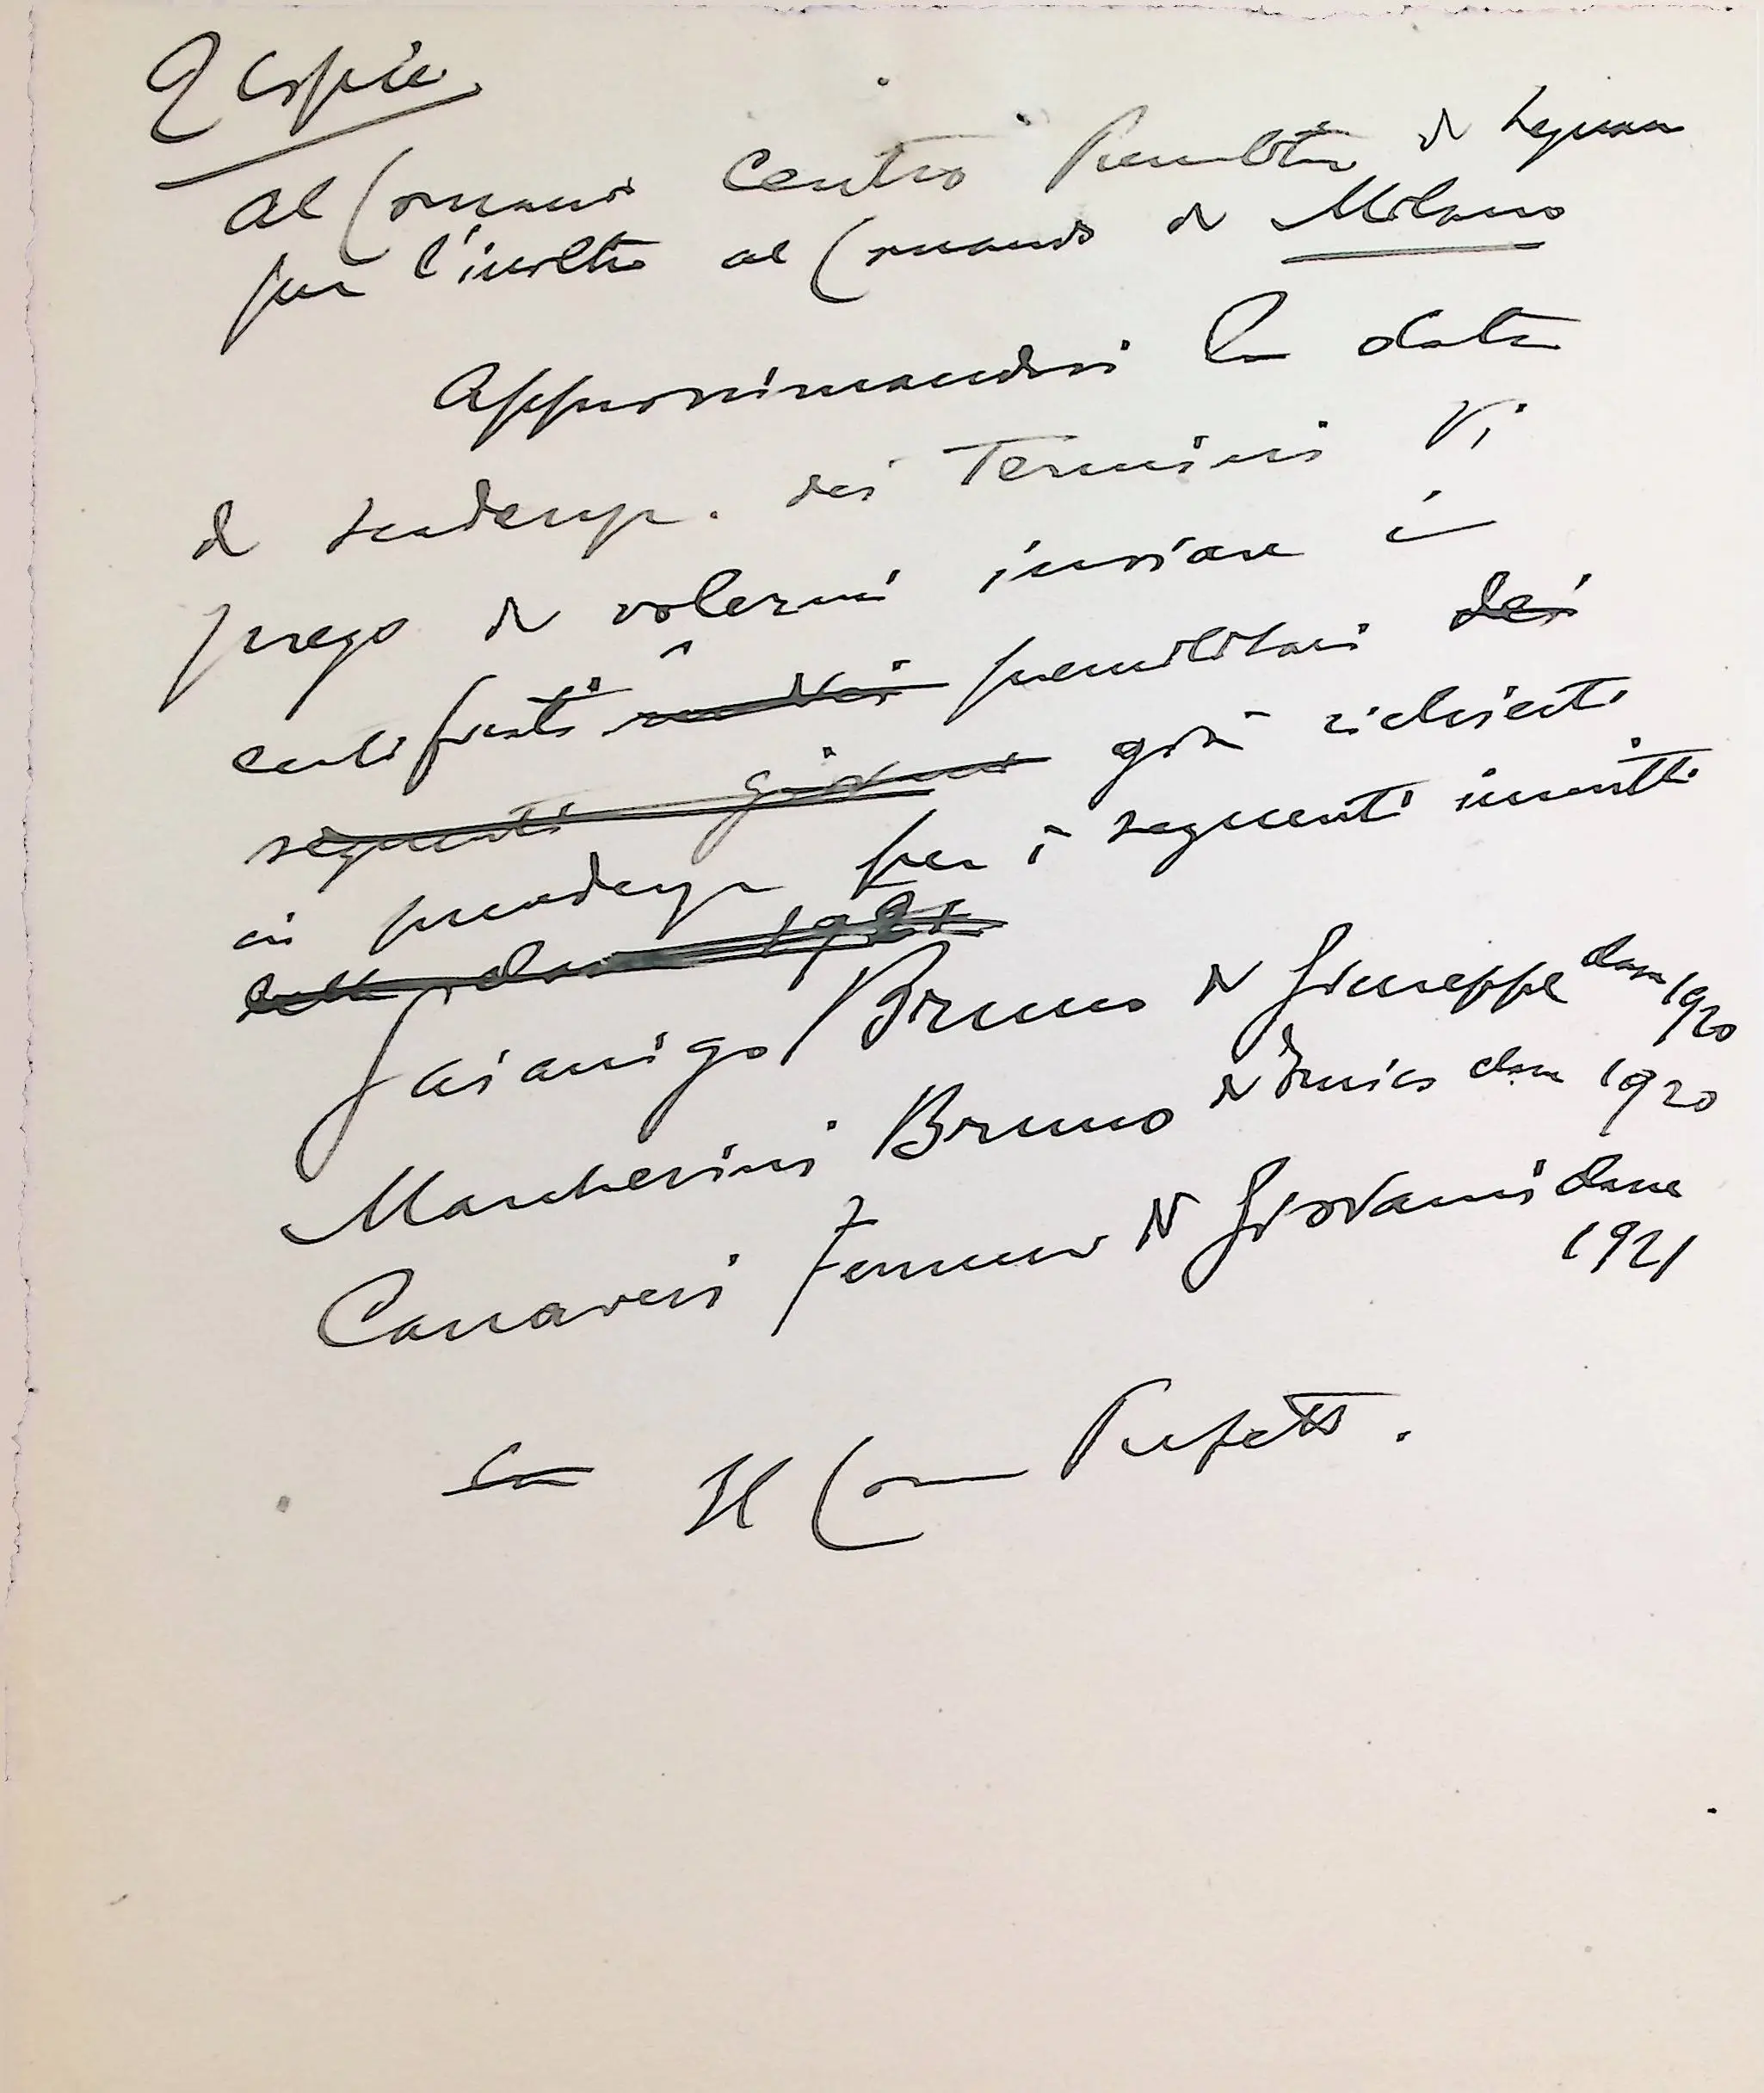 2 Copie
Al Comando Centro Premilitare di Legnano
per l'inoltro al Comando di Milano
Approssimandosi la data
di scadenza dei termini Vi
prego di volermi inviare i
certificati premilitari dei
seguenti giovani già richiesti
in precedenza per i seguenti inscritti
1921
Gianigo Bruno di Giuseppe classe 1920
Marcherini Bruno di classe 1920
Canaveri di Giovanni classe
1921
Il Com